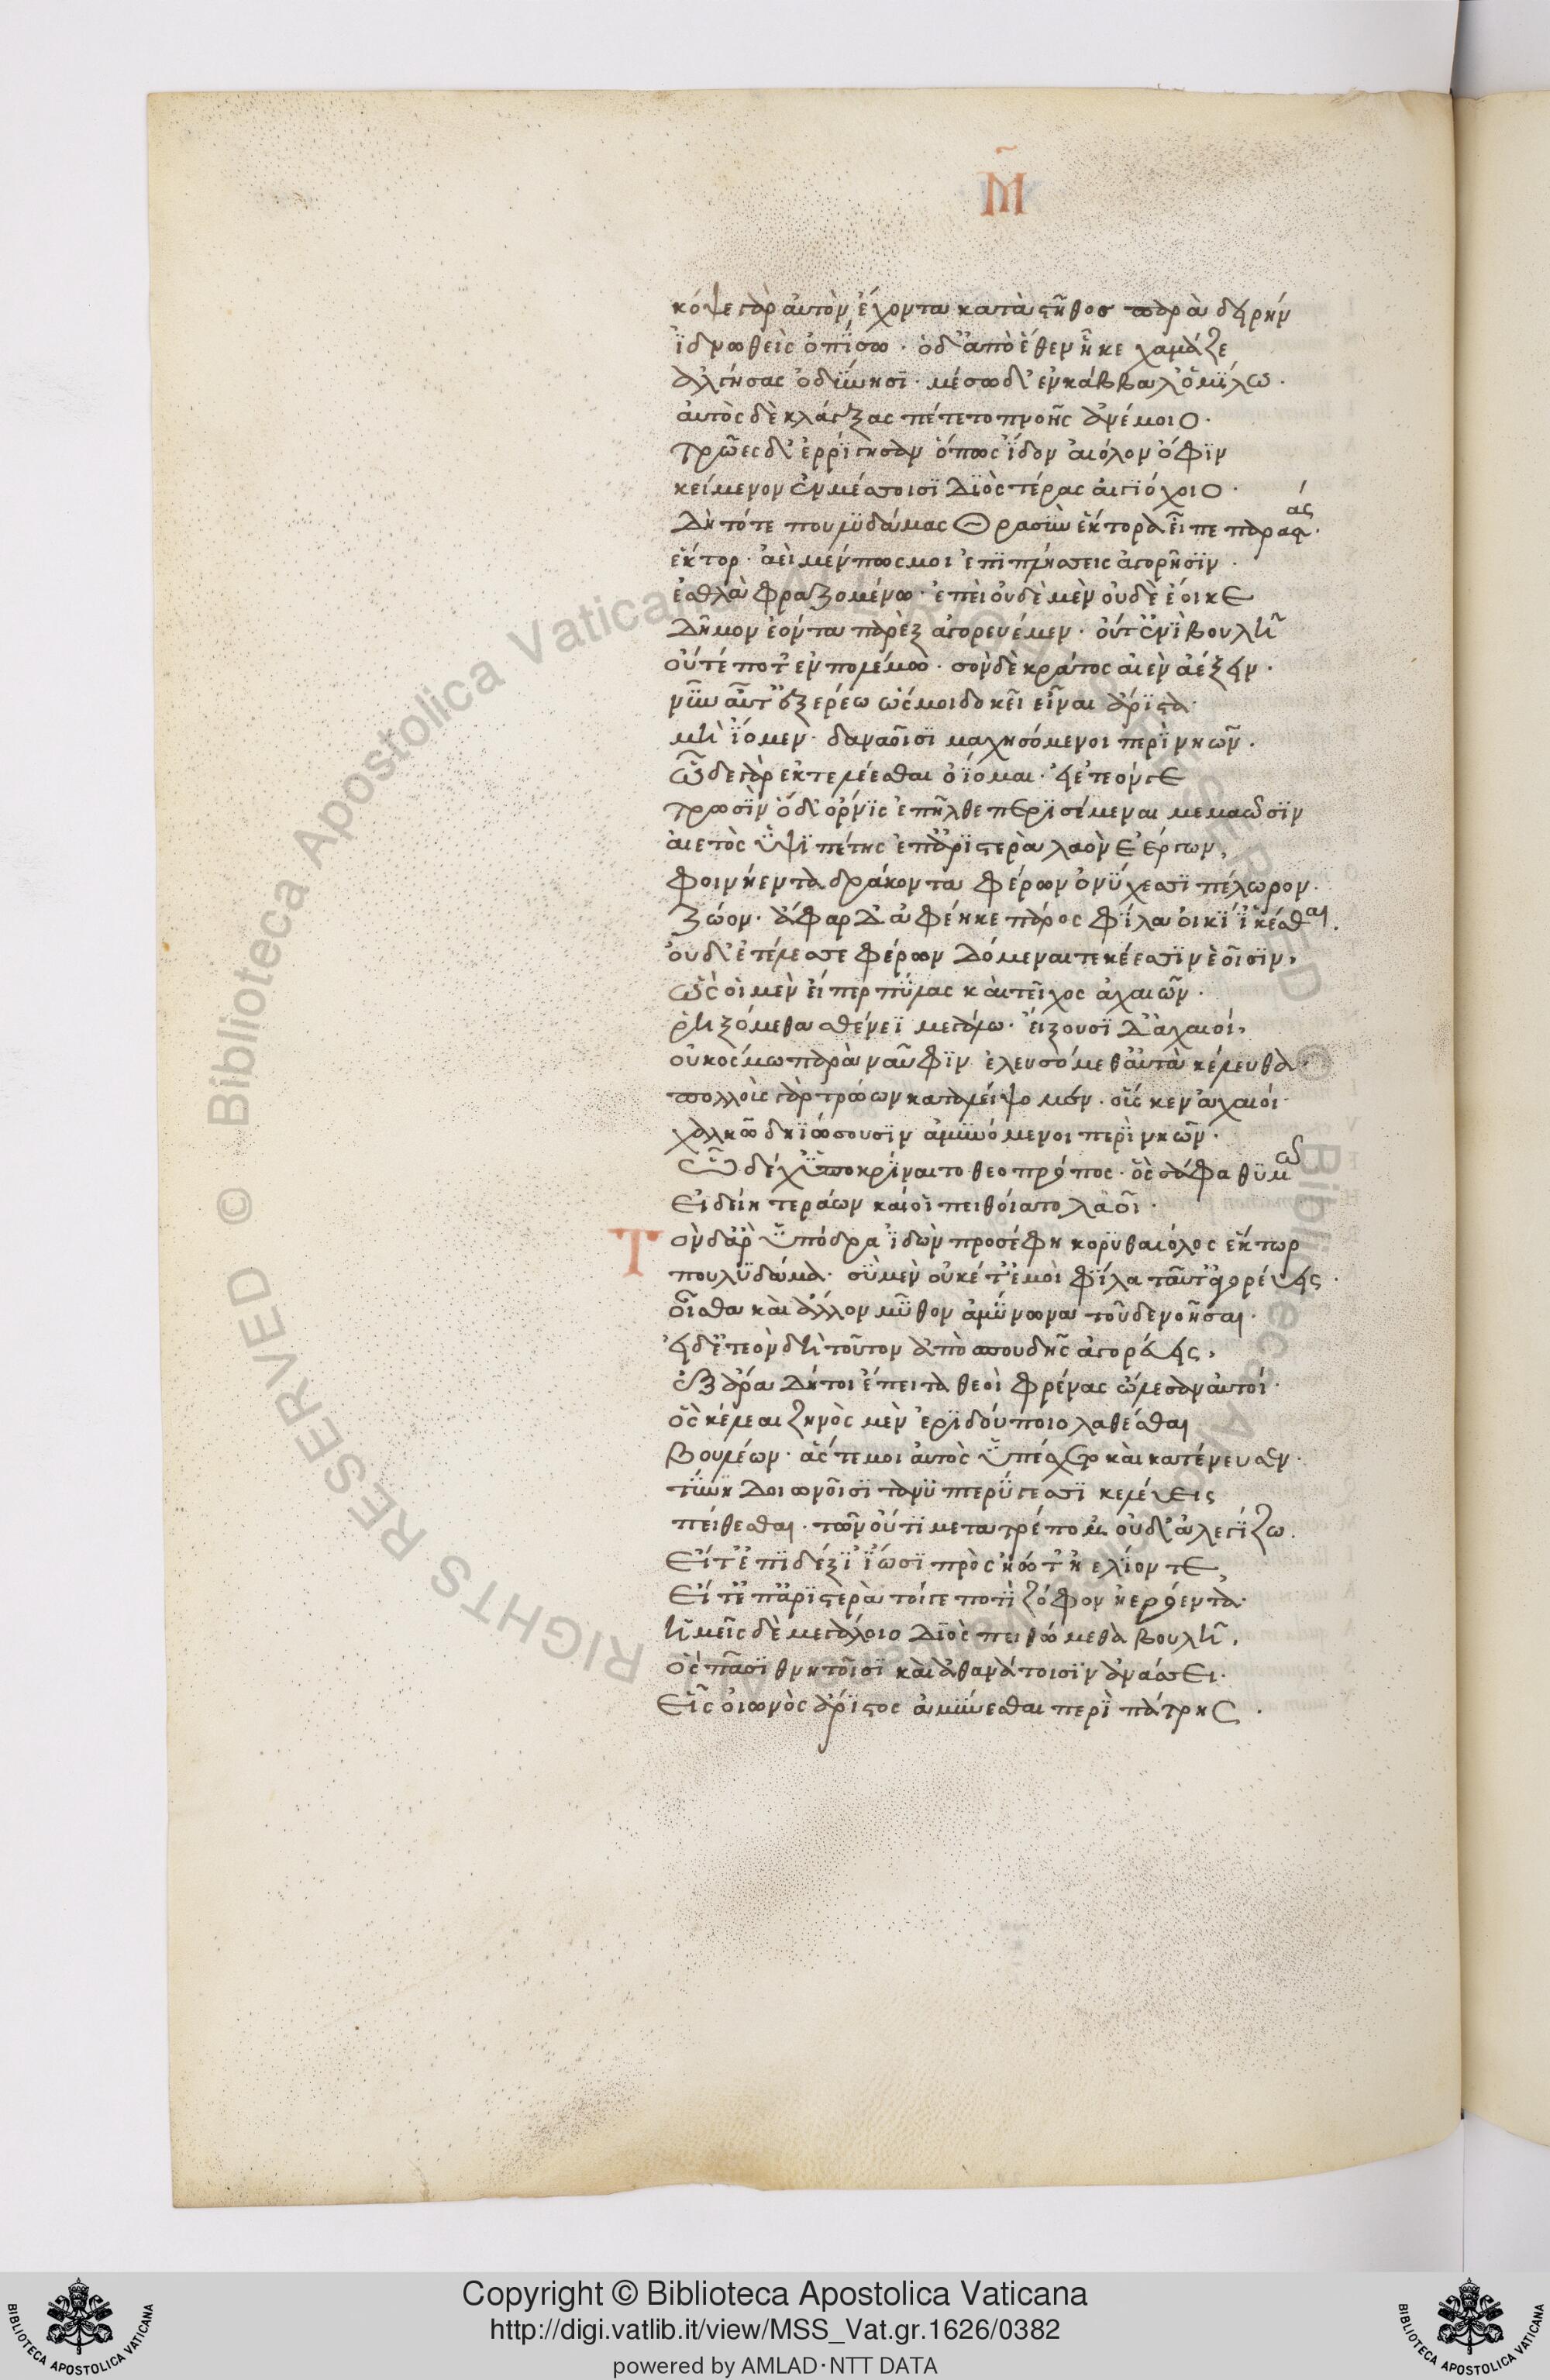 Μ̃
κόψε γὰρ αὐτὸν ἔχοντα κατὰ στῆθος παρὰ δειρήν
ἰδνωθεὶς ὀπίσω · ὁ δ' ἀπὸ ἕθεν ἧκε χαμάζε
ἀλγήσας ὀδύνησι · μέσω δ' ἐν κάββαλ' ὁμίλω ·
αὐτὸς δὲ κλάγξας πέτετο πνοιῆς ἀνέμοιο ·
τρῶες δ' ἐρρίγησαν ὅπως ἴδον αἰόλον ὄφιν
κείμενον ἐν μέσσοισι Διὸς τέρας αἰγιόχοιο ·
Δὴ τότε πουλυδάμας Θρασὺν ἕκτορα εἶπε παραστάς ·
ἕκτορ · ἀεὶ μέν πως μοι ἐπιπλήσσεις ἀγορῆσιν ·
ἐσθλὰ φραζομένω · ἐπεὶ οὐδὲ μὲν οὐδὲ ἔοικε
Δῆμον ἐόντα παρὲξ ἀγορευέμεν · οὔτ' ἐνὶ βουλῆ
οὔτέ ποτ' ἐν πολέμω · σὸν δὲ κράτος αἰὲν ἀέξειν ·
νῦν αὖτ' ἐξερέω ὥς μοι δοκεῖ εἶναι ἄριστα ·
μὴ ἴομεν · δαναοῖσι μαχησόμενοι περὶ νηῶν ·
ὧδε γὰρ ἐκτελέεσθαι ὀΐομαι · εἰ ἐτεόν γε
τρωσὶν ὅδ' ὄρνις ἐπῆλθε περησέμεναι μεμαῶσιν
αἰετὸς ὑψιπέτης ἐπ' ἀριστερὰ λαὸν ἐέργων,
φοινήεντα δράκοντα φέρων ὀνύχεσσι πέλωρον ·
ζώον · ἄφαρ δ' ἀφέηκε πάρος φίλα οἰκί' ἱκέσθαι ·
οὐδ' ἐτέλεσσε φέρων Δόμεναι τεκέεσσιν ἑοῖσιν,
ὣς οἱ μὲν εἴπερ πύλας καὶ τεῖχος ἀχαιῶν ·
ῥηξόμεθα σθένεϊ μεγάλω · εἴξουσι δ' ἀχαιοί,
οὐ κόσμω παρὰ ναῦφιν ἐλευσόμεθ' αὐτὰ κέλευθα ·
πολλοὺς γὰρ τρώων καταλείψομεν · οὕς κεν ἀχαιοί ·
χαλκῶ δηϊώσουσιν ἀμυνόμενοι περὶ νηῶν ·
ὧδέ χ' ὑποκρίναιτο θεοπρόπος · ὃς σάφα θυμῶ
Εἰδείη τεράων καί οἱ πειθοίατο λαοί ·
Τὸν δ' ἄρ' ὑπόδρα ἰδὼν προσέφη κορυθαιόλος ἕκτωρ
πουλυδάμα · σὺ μὲν οὐκέτ' ἐμοὶ φίλα ταῦτ' ἀγορεύεις ·
οἶσθα καὶ ἄλλον μῦθον ἀμύνονα τοῦδε νοῆσαι ·
εἰ δ' ἐτεὸν δὴ τοῦτον ἀπὸ σπουδῆς ἀγορεύεις,
ἐξ ἄρα Δή τοι ἔπειτα θεοὶ φρένας ὤλεσαν αὐτοί ·
ὃς κέλεαι ζηνὸς μὲν ἐριδούποιο λαθέσθαι
βουλέων · ἅς τέ μοι αὐτὸς ὑπέσχετο καὶ κατένευσεν ·
τύνη Δ' οἰωνοῖσι τανυπτερύγεσσι κελεύεις
πείθεσθαι · τῶν οὔτι μετατρέπομ' οὐδ' ἀλεγίζω ·
Εἴτ' ἐπὶ δέξι' ἴωσι πρὸς ἠῶ τ' ἠέλιόν τε,
Εἴτ' ἐπ' ἀριστερὰ τοίγε ποτὶ ζόφον ἠερόεντα ·
ἡμεῖς δὲ μεγάλοιο Διὸς πειθώμεθα βουλῆ,
ὃς πᾶσι θνητοῖσι καὶ ἀθανάτοισιν ἀνάσσει ·
Εἷς οἰωνὸς ἄριστος ἀμύνεσθαι περὶ πάτρης ·
Copyright © Biblioteca Apostolica Vaticana
http://digi.vatlib.it/view/MSS_Vat.gr.1626/0382
powered by AMLAD·NTT DATA
BIBLIOTECA APOSTOLICA VATICANA
BIBLIOTECA APOSTOLICA VATICANA
Biblioteca Apostolica Vaticana ALL RIGHTS RESERVED ©